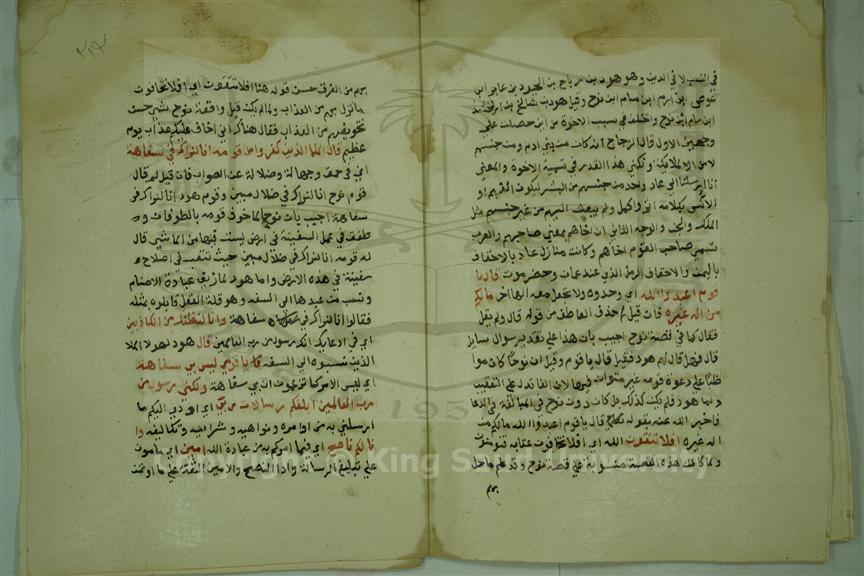 في النسب لا في الدين وهو هود بن عبد الله بن رباح بن الخلود بن عاد بن
عوص ابن ارم ابن سام ابن نوح وقيل هود بن شالخ بن ارفخشد
ابن سام ابن نوح واختلف في سبب الاخوة من اين حصلت على
وجهين الاول قال الزجاج انه كان من بني ادم ومن جنسهم
لا من الملايكة ويكفي هذا القدر في تسمية الاخوة والمعنى
انا ارسلنا الى عاد واحد من جنسهم من البشر ليكون الفهم و
الانس بكلامه اتم واكمل ولم يبعث اليهم من غير جنسهم مثل
الملك والجن والوجه الثاني ان اخاهم بمعنى صاحبهم والعرب
تسمي صاحب القوم اخاهم وكانت منازل عاد بالاحقاف
باليمن والاحقاف الرمل الذي عند عمان وحضرموت قال يا
قوم اعبدوا الله اي وحدوه ولا تجعلوا معه الها اخر مالكم
من اله غيره فان قيل لم حذف العاطف من قوله قال ولم يقل
فقال كما في قصة نوح اجيب بان هذا على تقدير سوال سايل
قال فما قال لهم هود فقيل قال يا قوم وقيل ان نوحا كان مواظبا
على دعوة قومه غير متوان فيها لان الفا تدل على التعقيب
واما هود فلم يكن كذلك بل كان دون نوح في المبالغة في الدعا
فاخبر الله عنه بقوله قال يا قوم اعبدوا الله مالكم من
اله غيره افلا تتقون الله اي افلا تخافون عقابه فتؤمنون
ولما كانت هذه القصة منسوبة على قصة نوح وقد علم ما حل
بهم
بهم من الغرق حسن قوله هنا افلا تتقون اي افلا تخافون
ما نزل بهم من العذاب ولما لم يكن قبل واقعة نوح شي حسن
تخويفهم من العذاب فقال هناك اني اخاف عليكم عذاب يوم
عظيم قال الملا الذين كفروا من قومه انا لنراك في سفاهة
اي في حمق وجهالة وضلالة عن الصواب فان قيل لم قال
قوم نوح انا لنراك في ضلال مبين وقوم هود انا لنراك في
سفاهة اجيب بان نوح لما خوف قومه بالطوفان و
طفق في عمل السفينة في ارض ليست فيها من الما شي قال
له قومه انا لنراك في ضلال مبين حيث تتعب في اصلاح
سفينة في هذه الارض واما هود لما زيف عبادة الاصنام
ونسب من عبدها الى السفه وهو قلة العقل قابلوه بمثله
فقالوا انا لنراك في سفاهة وانا لنظنك من الكاذبين
اي في ادعايك انك رسول من رب العالمين قال هود لهولا الملا
الذين نسبوه الى السفه قال يا قوم ليس بي سفاهة
اي ليس الامر كما تزعمون ان بي سفاهة ولكني رسول من
رب العالمين ابلغكم رسالات ربي اي اودي اليكم ما
ارسلني به من اوامره ونواهيه وشرايعه وتكاليفه وا
نا لكم ناصح اي فيما امركم به من عبادة الله امين اي مامون
على تبليغ الرسالة واداء النصح والامين الثقة على ما اوتمن
Copyright © King Saud University
195